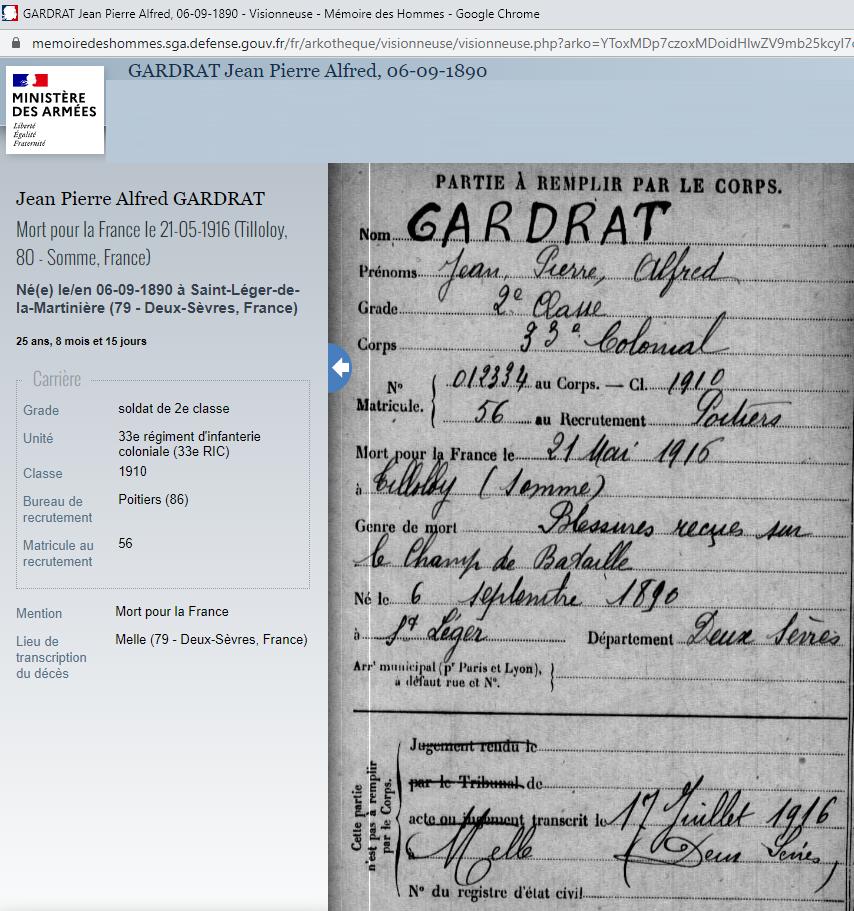 GARDRAT Jean Pierre Alfred, 06-09-1890 - Visionneuse - Mémoire des Hommes - Google Chrome
memoiredeshommes.sga.defense.gouv.fr/fr/arkotheque/visionneuse/visionneuse.php?arko=YToxMDp7czoxMDoidHlwZV9mb25kcyI7
GARDRAT Jean Pierre Alfred, 06-09-1890
MINISTÈRE
DES ARMÉES
Liberté
Égalité
Fraternité
Jean Pierre Alfred GARDRAT
Mort pour la France le 21-05-1916 (Tilloloy,
80 - Somme, France)
Né(e) le/en 06-09-1890 à Saint-Léger-de-
la-Martinière (79 - Deux-Sèvres, France)
25 ans, 8 mois et 15 jours
Carrière
Grade soldat de 2e classe
Unité 33e régiment d'infanterie
coloniale (33e RIC)
Classe 1910
Bureau de Poitiers (86)
recrutement
Matricule au 56
recrutement
Mention Mort pour la France
Lieu de Melle (79 - Deux-Sèvres, France)
transcription
du décès
PARTIE À REMPLIR PAR LE CORPS.
Nom GARDRAT
Prénoms Jean, Pierre, Alfred
Grade 2e Classe
Corps 33e Colonial
N° Matricule. 012334 au Corps. — Cl. 1910
56 au Recrutement Poitiers
Mort pour la France le 21 Mai 1916
à Tilloloy (Somme)
Genre de mort Blessures reçues sur
le Champ de Bataille
Né le 6 septembre 1890
à St Léger Département Deux Sèvres
Arrt municipal (pr Paris et Lyon),
à défaut rue et N°.
Cette partie
n'est pas à remplir
par le Corps.
Jugement rendu le
par le Tribunal de
acte ou jugement transcrit le 17 Juillet 1916
à Melle (Deux Sèvres)
N° du registre d'état civil